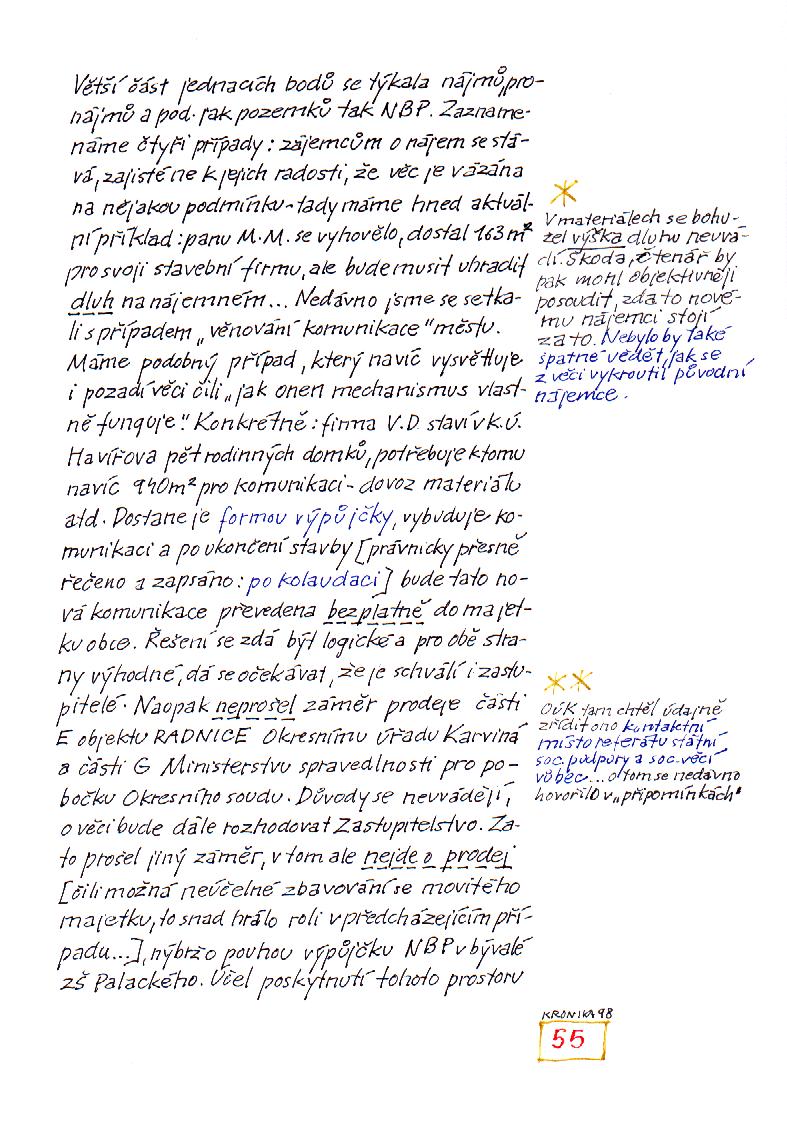 Větší část jednacích bodů se týkala nájmů, pro-
nájmů a pod. jak pozemků tak NBP. Zazname-
náme čtyři případy: zájemcům o nájem se stá-
vá, zajisté ne k jejich radosti, že věc je vázána
na nějakou podmínku - tady máme hned aktuál-
ní příklad: panu M.M. se vyhovělo, dostal 163 m²
pro svoji stavební firmu, ale bude musit uhradit
dluh na nájemném... Nedávno jsme se setka-
li s případem „věnování komunikace" městu.
Máme podobný případ, který navíc vysvětluje
i pozadí věci čili „jak onen mechanismus vlast-
ně funguje". Konkrétně: firma V.D. staví v k.ú.
Havířova pět rodinných domků, potřebuje k tomu
navíc 940 m² pro komunikaci - dovoz materiálu
atd. Dostane je formou výpůjčky, vybuduje ko-
munikaci a po ukončení stavby [právnicky přesně
řečeno a zapsáno: po kolaudaci] bude tato no-
vá komunikace převedena bezplatně do majet-
ku obce. Řešení se zdá být logické a pro obě stra-
ny výhodné, dá se očekávat, že je schválí i zastu-
pitelé. Naopak neprošel záměr prodeje části
E objektu RADNICE Okresnímu úřadu Karviná
a části G Ministerstvu spravedlnosti pro po-
bočku Okresního soudu. Důvody se neuvádějí,
o věci bude dále rozhodovat Zastupitelstvo. Za-
to prošel jiný záměr, v tom ale nejde o prodej
[čili možná neúčelné zbavování se movitého
majetku, to snad hrálo roli v předcházejícím pří-
padu...], nýbrž o pouhou výpůjčku NBP v bývalé
ZŠ Palackého. Účel poskytnutí tohoto prostoru
*
V materiálech se bohu-
žel výška dluhu neuvá-
dí. Škoda, čtenář by
pak mohl objektivněji
posoudit, zda to nové-
mu nájemci stojí
za to. Nebylo by také
špatné vědět, jak se
z věci vykroutil původní
nájemce.
**
OÚK tam chtěl údajně
zřídit ono kontaktní
místo referátu státní
soc. podpory a soc. věcí
vůbec... o tom se nedávno
hovořilo v „připomínkách"
KRONIKA 98
55